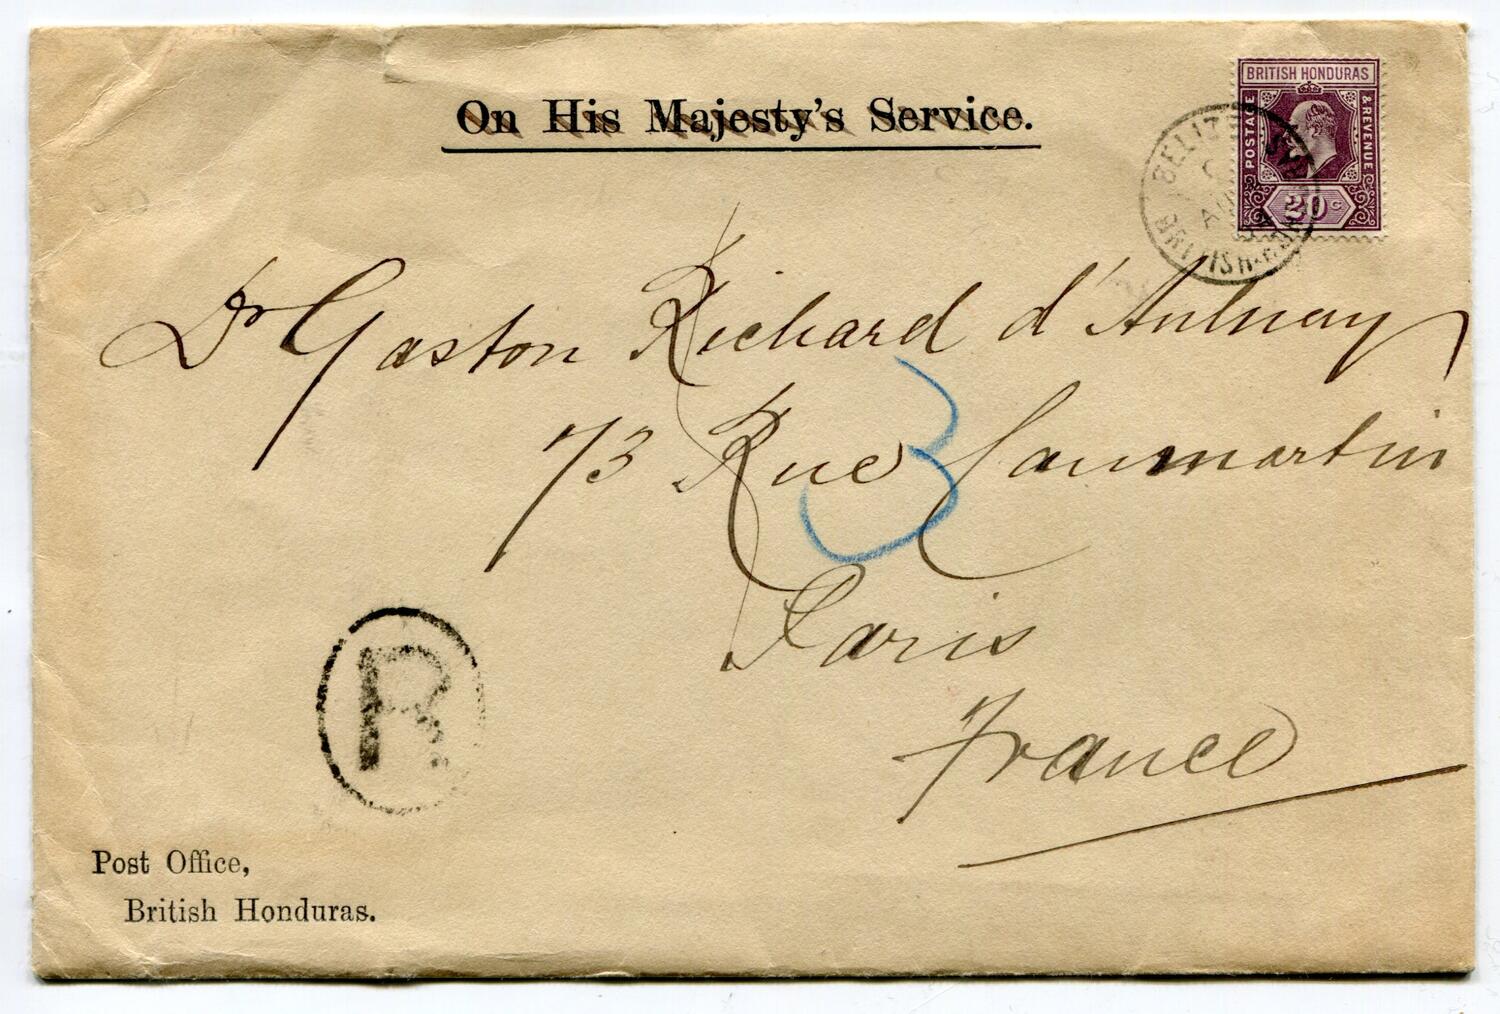 On His Majesty's Service.
BRITISH HONDURAS
POSTAGE & REVENUE
20 c
BELIZE
BRITISH HONDURAS
Dr Gaston Richard d'Aulnay
73 Rue Caumartin
3
Paris
France
R
Post Office,
British Honduras.